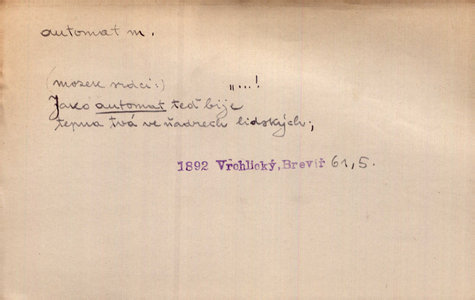 automat m.
(mozek srdci:) „...!
Jako automat teď bije
tepna tvá ve ňadrech lidských;
1892 Vrchlický, Breviř 61, 5.